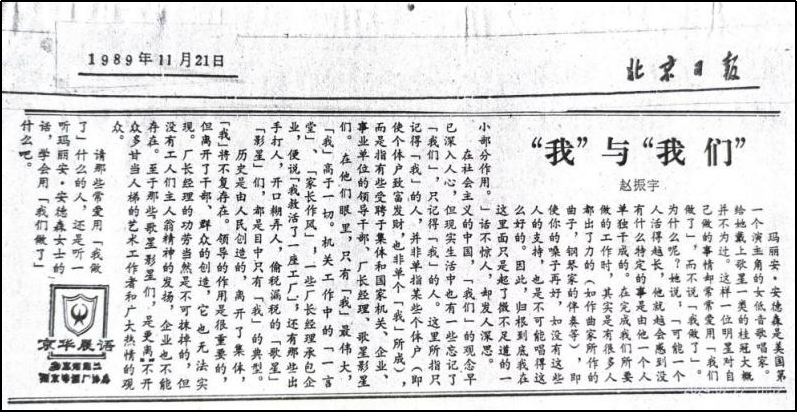 1989年11月21日
北京日报
“我”与“我们”
赵振宇
玛丽安·安德森是美国第
一个演主角的女低音歌唱家。
给她戴上歌星一类的桂冠大概
并不为过。这样一位明星对自
己做的事情却常常爱用“我们
做了”,而不说“我做了”。
为什么呢?她说,“可能一个
人活得越长,他就越会感到没
有什么特定的事是由他一个人
单独干成的。在完成我们所要
做的工作时,其实是有很多人
都出了力的(如作曲家所作的
曲子,钢琴家的伴奏等),即
使你的嗓子再好,如没有这些
人的支持,也是不可能唱得这
么好的。因此,归根到底我在
这里面只是起了微不足道的一
小部分作用。”话不惊人,却发人深思。
在社会主义的中国,“我们”的观念早
已深入人心,但现实生活中也有一些忘记了
“我们”,只记得“我”的人。这里所指只
记得“我”的人,并非单指某些个体户(即
使个体户致富发财,也非单个“我”所成),
而是指有些受聘于集体和国家机关、企业、
事业单位的领导干部、厂长经理、歌星影星
们。在他们眼里,只有“我”最伟大,
“我”高于一切。机关工作中的“一言
堂”、“家长作风”,一些厂长经理承包企
业,便说“我救活了一座工厂”;还有那些出
手打人、开口糊弄人、偷税漏税的“歌星”
“影星”们,都是目中只有“我”的典型。
历史是由人民创造的,离开了集体,
“我”将不复存在。领导的作用是很重要的,
但离开了干部、群众的创造,它也无法实
现。厂长经理的功劳当然是不可抹掉的,但
没有工人们主人翁精神的发扬,企业也不能
存在。至于那些歌星影星们,是更离不开
众多甘当人梯的艺术工作者和广大热情的观
众。
请那些常爱用“我做
了”什么的人,还是听一
听玛丽安·安德森女士的
话,学会用“我们做了”
什么吧。
京华晨语